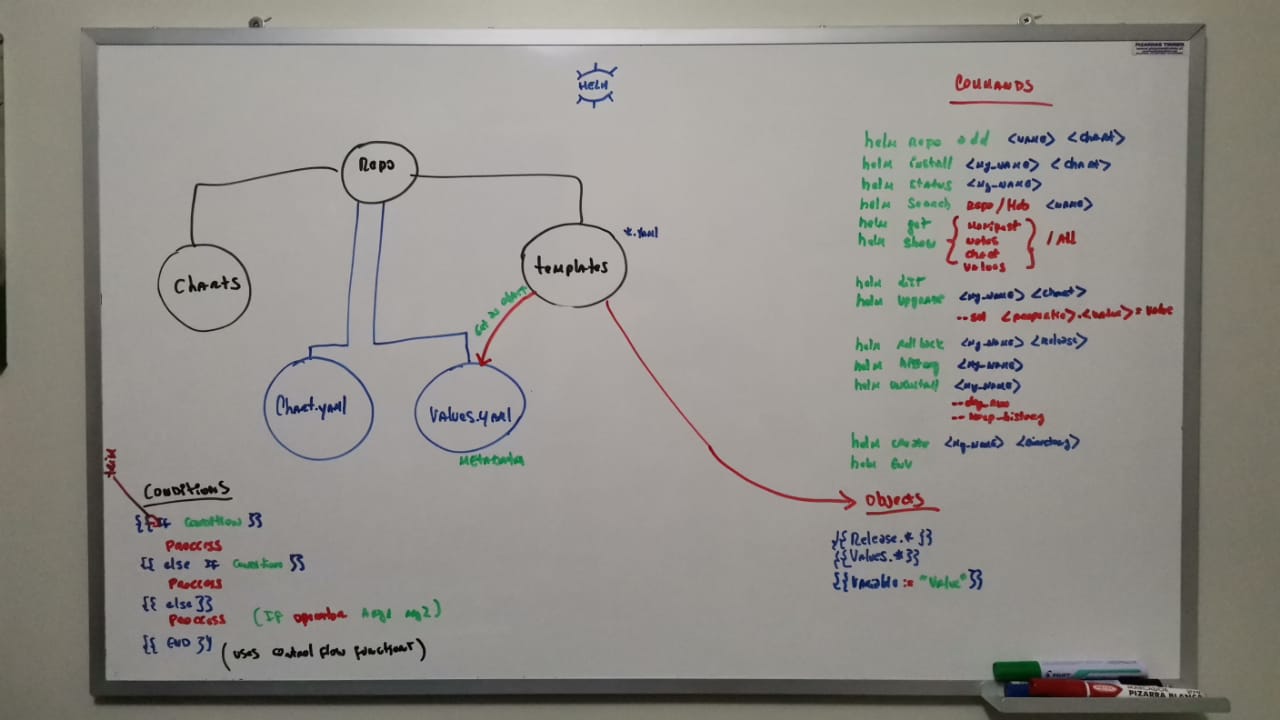 HELM
PIZARRAS
Repo
Charts
templates
*.yaml
Get as object
Chart.yaml
Values.yaml
METADATA
COMMANDS
helm repo add <NAME> <chart>
helm install <My_NAME> <chart>
helm status <My_NAME>
helm search Repo/Hub <NAME>
helm get
helm show
manifest
notes
chart
values
/ All
helm list
helm upgrade <My_NAME> <chart>
--set <value> = value
helm rollback <My_NAME> <Release>
helm history <My_NAME>
helm uninstall <My_NAME>
--dry_run
--keep_history
helm create <My_NAME> <Directory>
helm env
Objects
{{Release.*}}
{{Values.*}}
{{Variable := "Value"}}
trim
CONDITIONS
{{ IF Condition }}
Process
{{ else IF Condition }}
Process
{{ else}}
Process (IF operator Arg1 Arg2)
{{ END }} (uses control flow functions)
PILOT
MARCADOR
PIZARRA BLANCA